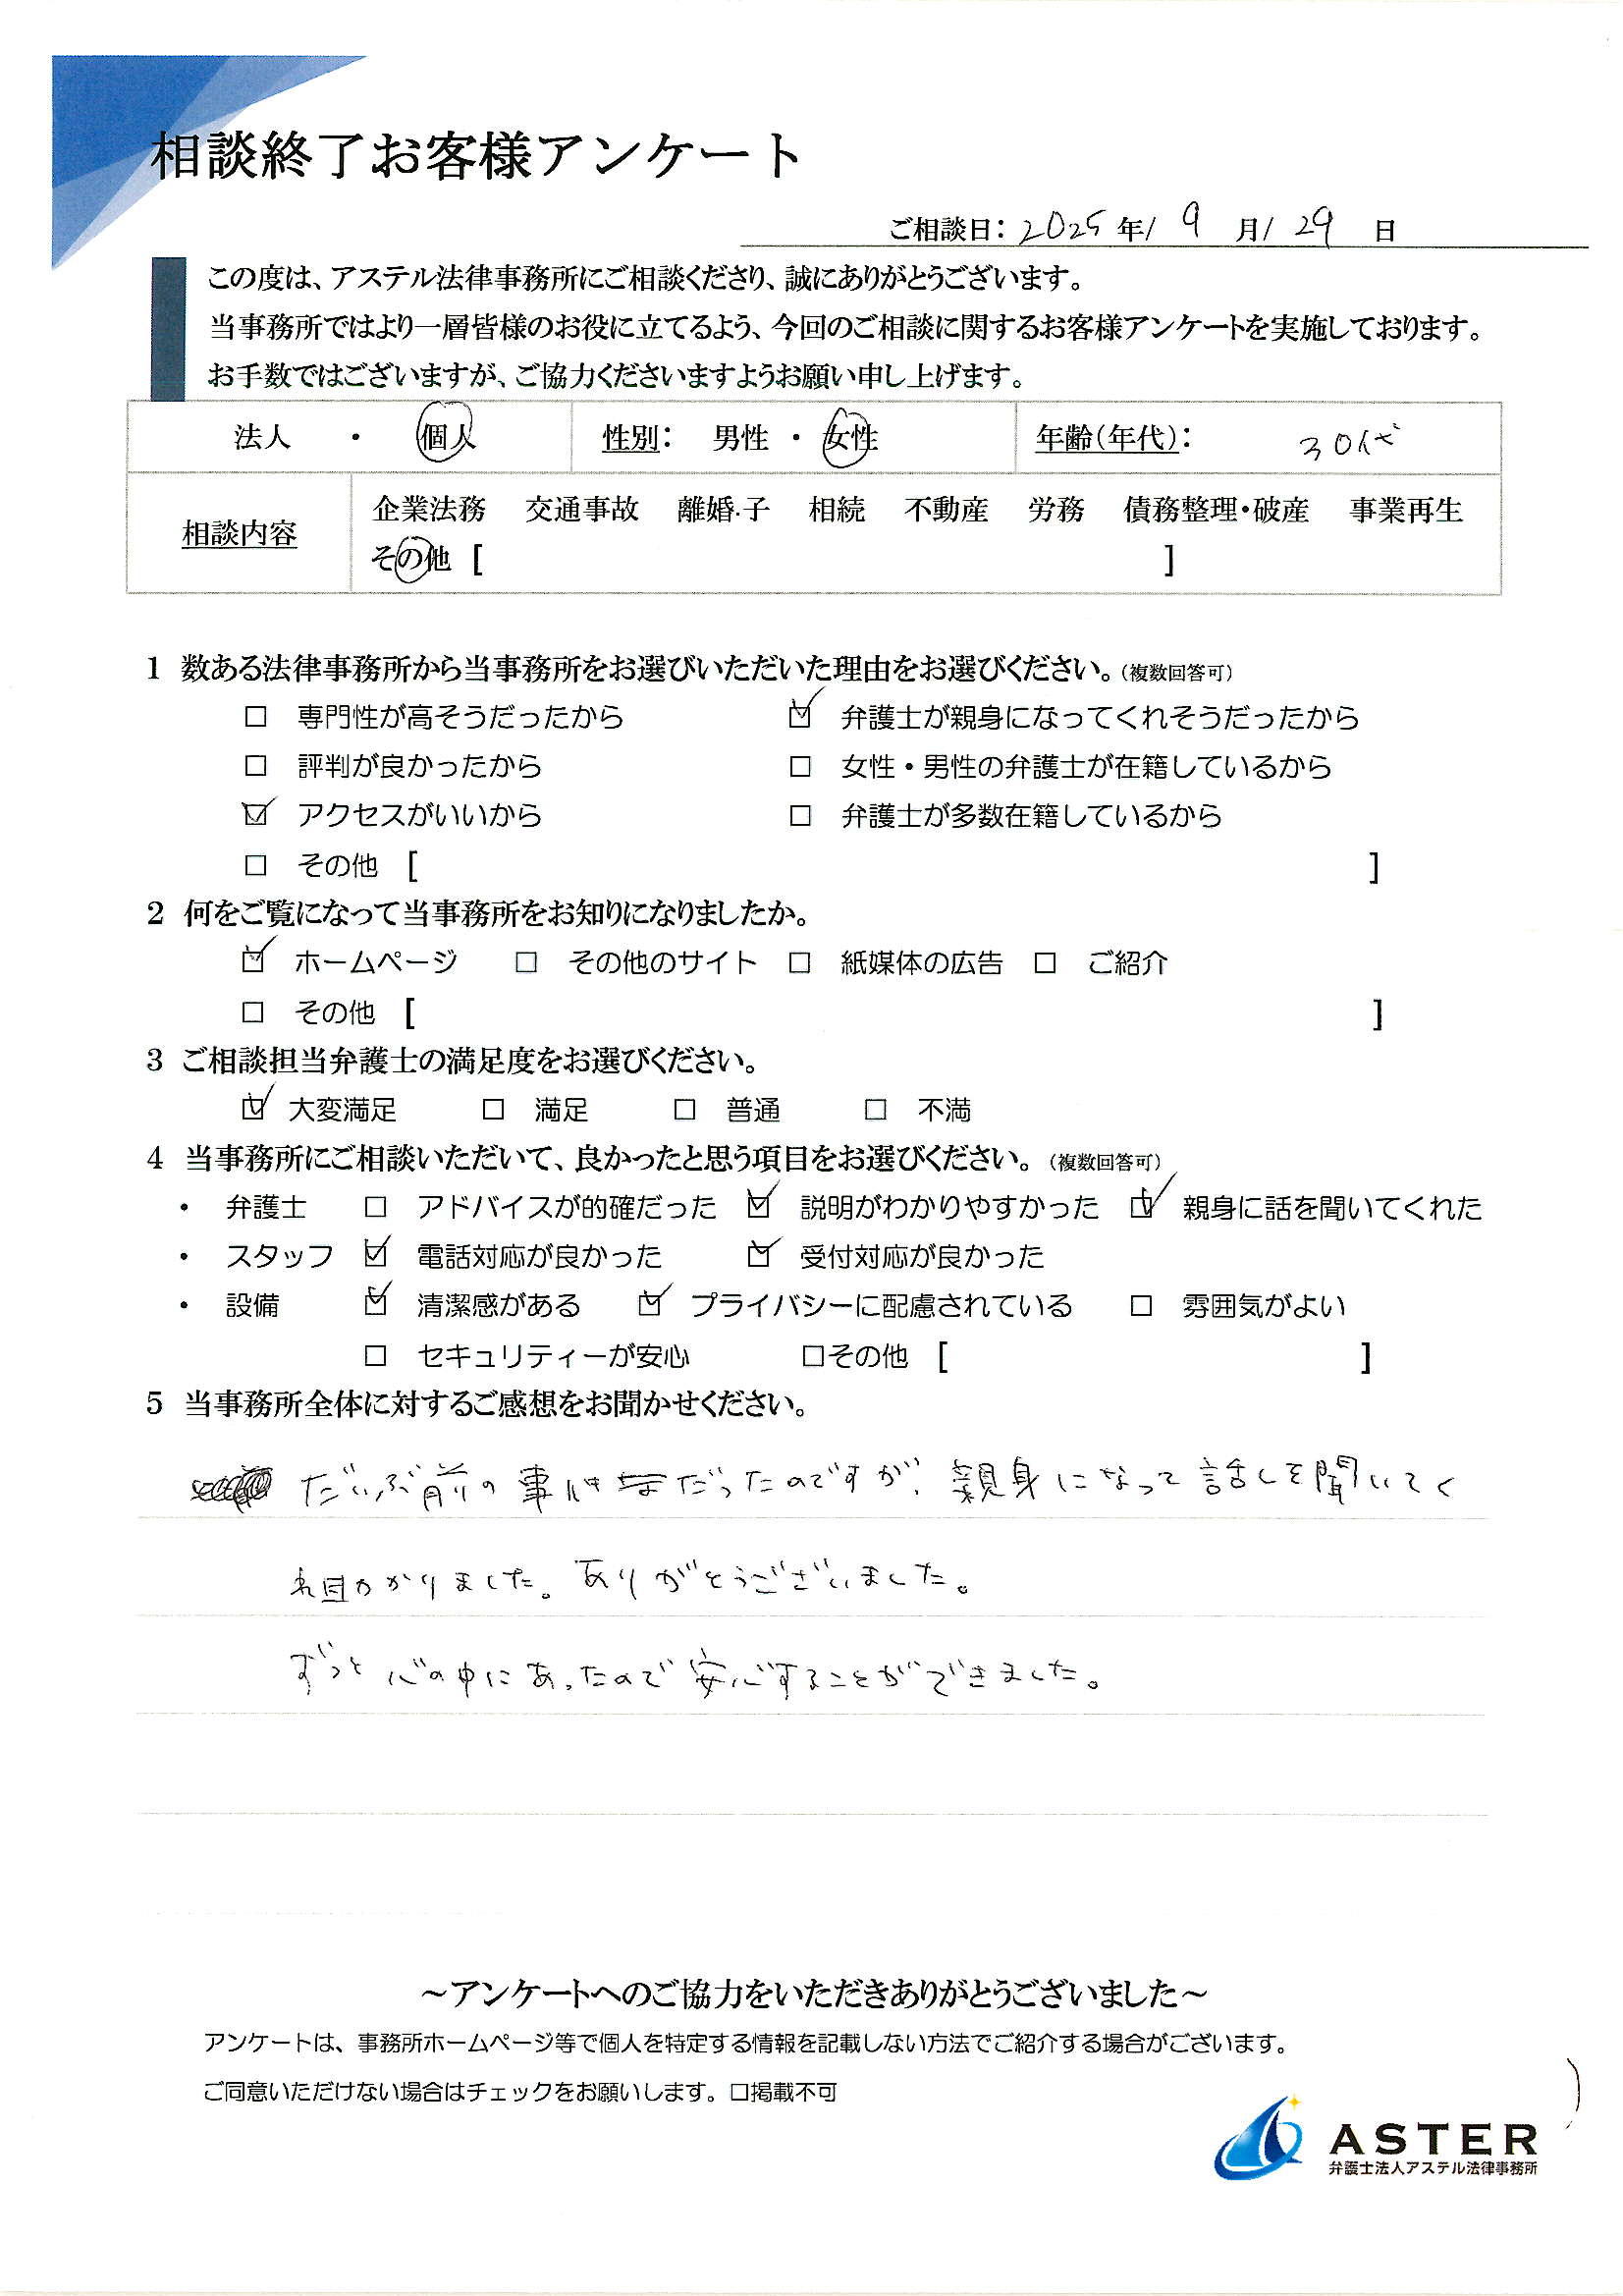 相談終了お客様アンケート
ご相談日： 2025 年/ 9 月/ 29 日
この度は、アステル法律事務所にご相談くださり、誠にありがとうございます。
当事務所ではより一層皆様のお役に立てるよう、今回のご相談に関するお客様アンケートを実施しております。
お手数ではございますが、ご協力くださいますようお願い申し上げます。
法人 ・ 個人 性別： 男性 ・ 女性 年齢（年代）： 30代
相談内容 企業法務 交通事故 離婚・子 相続 不動産 労務 債務整理・破産 事業再生
その他 [ ]
1 数ある法律事務所から当事務所をお選びいただいた理由をお選びください。（複数回答可）
□ 専門性が高そうだったから ☑ 弁護士が親身になってくれそうだったから
□ 評判が良かったから □ 女性・男性の弁護士が在籍しているから
☑ アクセスがいいから □ 弁護士が多数在籍しているから
□ その他 [ ]
2 何をご覧になって当事務所をお知りになりましたか。
☑ ホームページ □ その他のサイト □ 紙媒体の広告 □ ご紹介
□ その他 [ ]
3 ご相談担当弁護士の満足度をお選びください。
☑ 大変満足 □ 満足 □ 普通 □ 不満
4 当事務所にご相談いただいて、良かったと思う項目をお選びください。（複数回答可）
・ 弁護士 □ アドバイスが的確だった ☑ 説明がわかりやすかった ☑ 親身に話を聞いてくれた
・ スタッフ ☑ 電話対応が良かった ☑ 受付対応が良かった
・ 設備 ☑ 清潔感がある ☑ プライバシーに配慮されている □ 雰囲気がよい
□ セキュリティーが安心 □その他 [ ]
5 当事務所全体に対するご感想をお聞かせください。
だいぶ前の事 だったのですが、親身になって話しを聞いてく
れ かりました。ありがとうございました。
ずっと心の中にあったので安心することができました。
～アンケートへのご協力をいただきありがとうございました～
アンケートは、事務所ホームページ等で個人を特定する情報を記載しない方法でご紹介する場合がございます。
ご同意いただけない場合はチェックをお願いします。□掲載不可
ASTER
弁護士法人アステル法律事務所